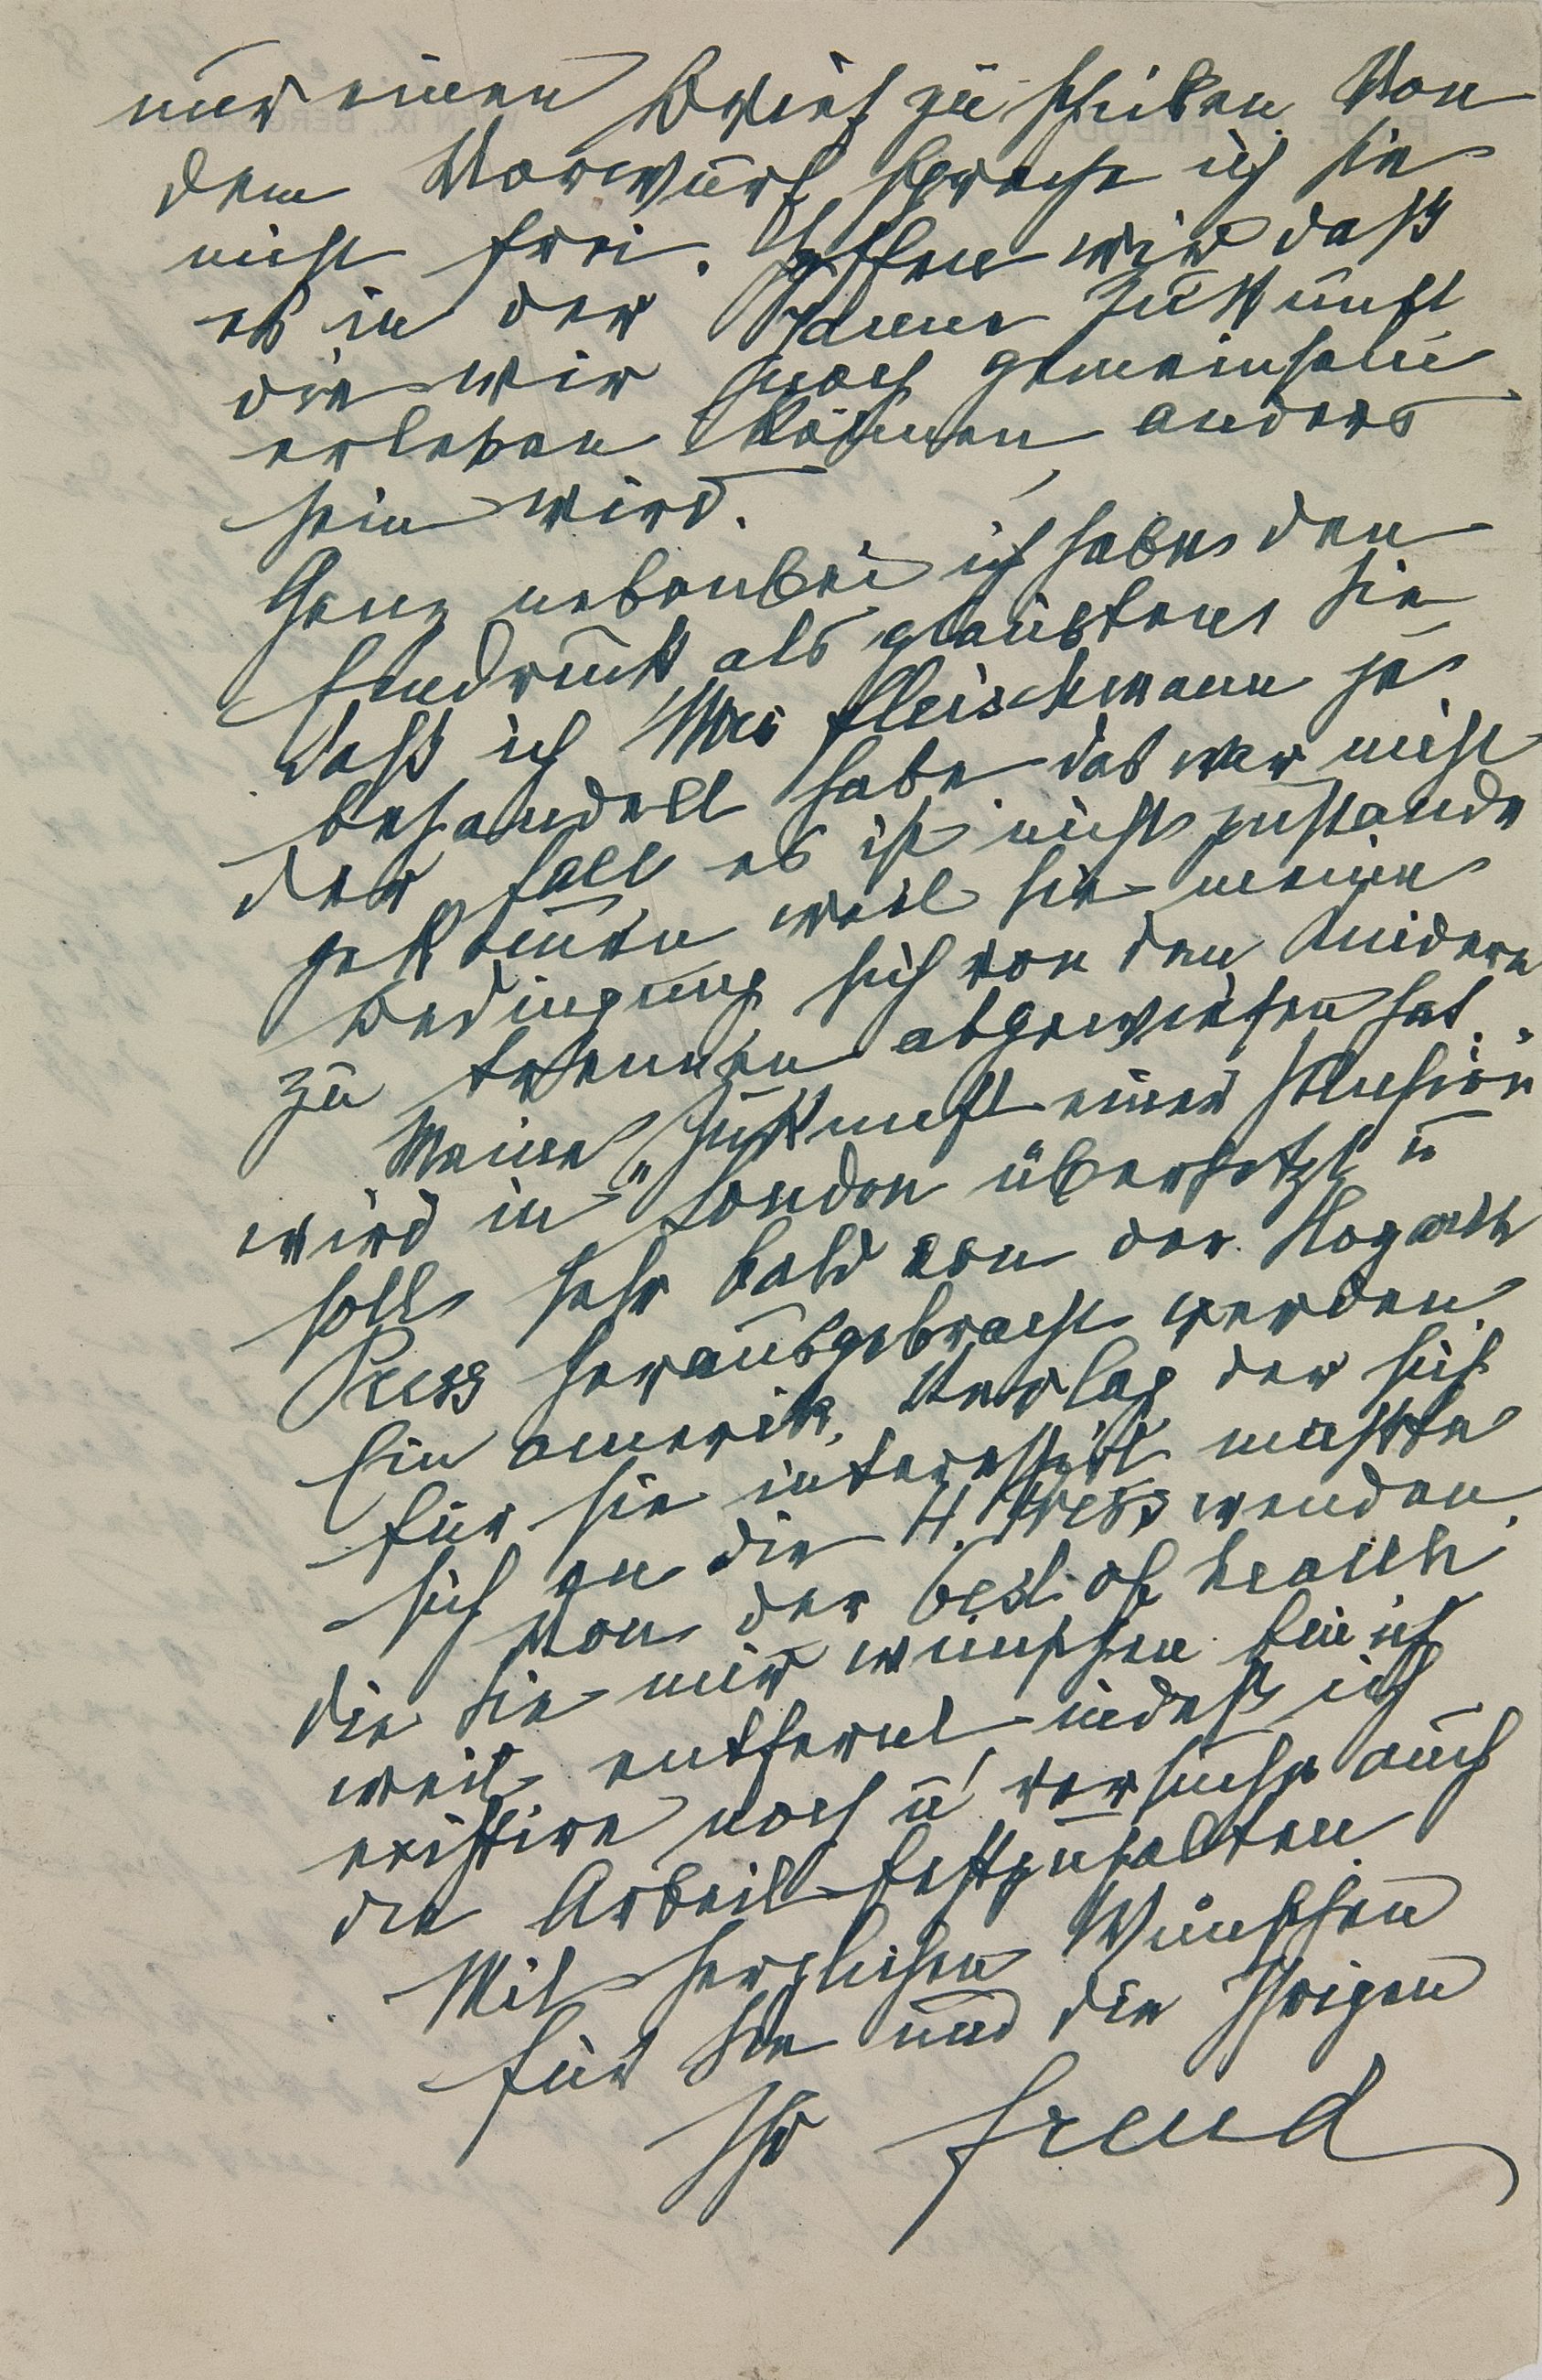 mir einen Brief zu schicken. Von
dem Vorwurf spreche ich Sie
nicht frei. Hoffen wir daß
es in der Spanne Zukunft
die wir noch gemeinsam
erleben können, anders
sein wird.
Ganz nebenbei ich habe den
Eindruck als glaubten Sie
daß ich Mrs Fleischmann je
behandelt habe das war nicht
der Fall es ist nicht zustande
gekommen weil sie meine
Bedingung sich von den Kindern
zu trennen abgewiesen hat.
Meine „Zukunft einer Illusion"
wird in London übersetzt u
soll sehr bald von der Hogarth
Press herausgebracht werden.
Ein amerik. Verlag der sich
für sie interessirt müßte
sich an die H. Press wenden.
Von der best of health
die Sie mir wünschen bin ich
weit entfernt, indeß ich
existire noch u versuche auch
die Arbeit festzuhalten.
Mit herzlichen Wünschen
für Sie und die Ihrigen
Ihr Freud